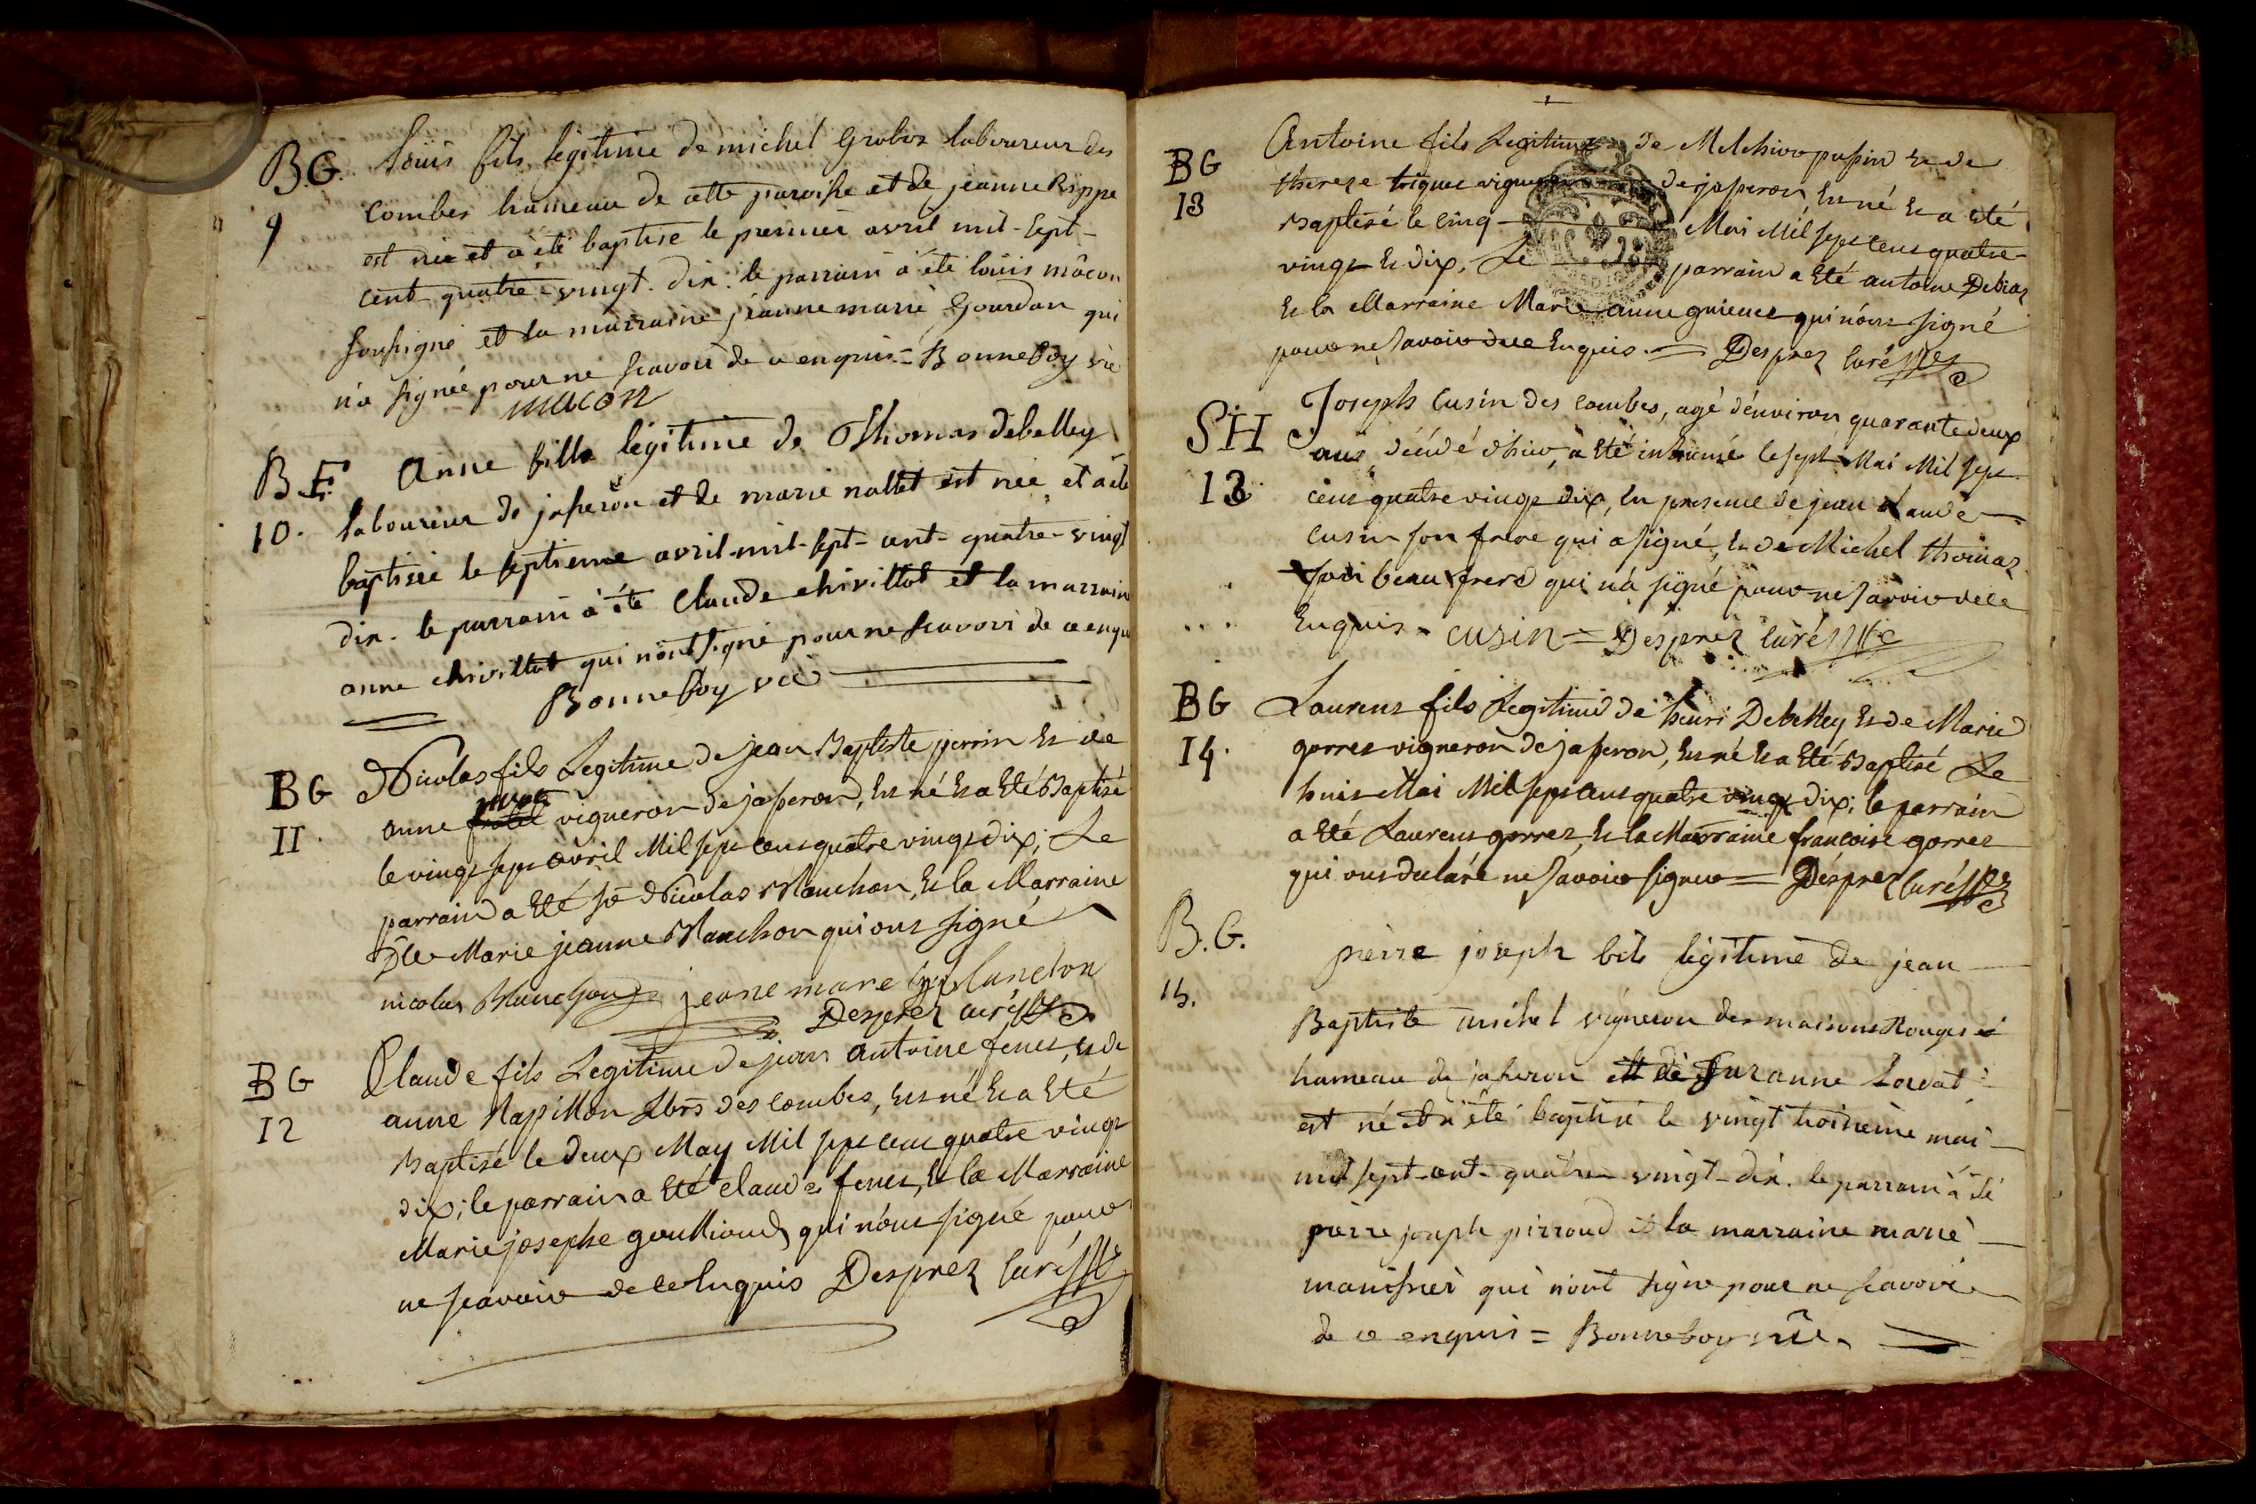 B.G. Loüis fils legitime de michel Grobos laboureur des
9 combes hameau de cette paroisse et de jeanne Rippe
est née et a été baptisé le premier avril mil-sept-
cent-quatre-vingt-dix: le parrain a été loüis mâcon
soussigné et la marraine jeanne marie Gourdan qui
n'a signée pour ne scavoir de ce enquis = Bonnefoy vre
macon
B.F. Anne fille légitime de Thomas debelley
10. laboureur de jasseron et de marie nallet est née et a été
baptisée le septieme avril-mil-sept-cent-quatre-vingt
dix. le parrain à été Claude chivillot et la marraine
anne chivillot qui n'ont signé pour ne scavoir de ce enquis
Bonnefoy vre
BG Nicolas fils Legitime de jean Baptiste perrin et de
II. anne vigneron de jasseron, est né et a eté Baptisé
le vingt sept avril Mil sept cent quatre vingt dix; Le
parrain a eté sr Nicolas Blanchon, et la Marraine
Dlle Marie jeanne Blanchon qui ont signé
nicolas Blanchon jeane marie blanchon
Desprez curé
BG Claude fils Legitime de jean antoine fenet, et de
12 anne Rapillon des combes, est né et a eté
Baptisé le deux May Mil sept cent quatre vingt
dix; le parrain a eté claude fenet, et la Marraine
Marie josephe goullioud qui n'ont signé pour
ne scavoir de ce enquis Desprez curé
BG Antoine fils Legitime de Melchior pussin et de
13 therese de jasseron est né et a eté
Baptisé le cinq Mai Mil sept cent quatre-
vingt et dix, Le parrain a eté antoine Debiaz
et la Marraine Marie anne guienet qui n'ont signé
pour ne savoir de ce Enquis. = Desprez curé
SH Joseph Cusin des combes, agé d'environ quarante deux
13. ans, décédé d'hier, a eté inhumé le sept Mai Mil sept
cent quatre vingt dix, en presence de jean claude
cusin son frere qui a signé, et de Michel thomas
son beau frere qui n'a signé pour ne savoir de ce
Enquis. cusin = Desprez curé
BG Laurens fils Legitime de henri Debelley, et de Marie
14. gorrez vigneron de jasseron, est né et a eté Baptisé Le
huit Mai Mil sept cent quatre vingt dix; le parrain
a eté Laurent gorrez, et la Marraine francoise gorrez
qui ont declaré ne savoir signer = Desprez curé
B.G. pierre joseph fils légitime de jean
15. Baptiste michel vigneron des maisons Rouges
hameau de jasseron et de Suzanne
est né et a été baptisé le vingt troisieme mai
mil sept-cent-quatre-vingt-dix. le parrain à été
pierre joseph pirroud et la marraine marie
manissier qui n'ont signé pour ne scavoir
de ce enquis = Bonnefoy vre.